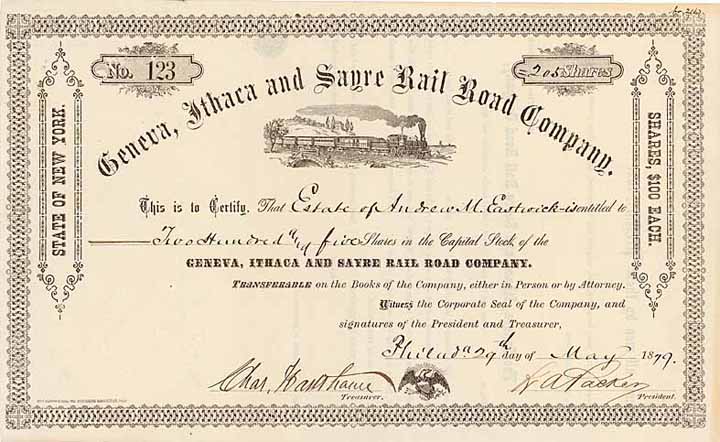 No. 123
205 Shares
Geneva, Ithaca and Sayre Rail Road Company.
STATE OF NEW YORK.
SHARES, $100 EACH.
This is to Certify, That Estate of Andrew M. Eastwick is entitled to
Two Hundred and five Shares in the Capital Stock of the
GENEVA, ITHACA AND SAYRE RAIL ROAD COMPANY.
TRANSFERABLE on the Books of the Company, either in Person or by Attorney.
Witness the Corporate Seal of the Company, and
signatures of the President and Treasurer,
Philada 29th day of May 1879.
Chas. Hartshorne
Treasurer.
President.